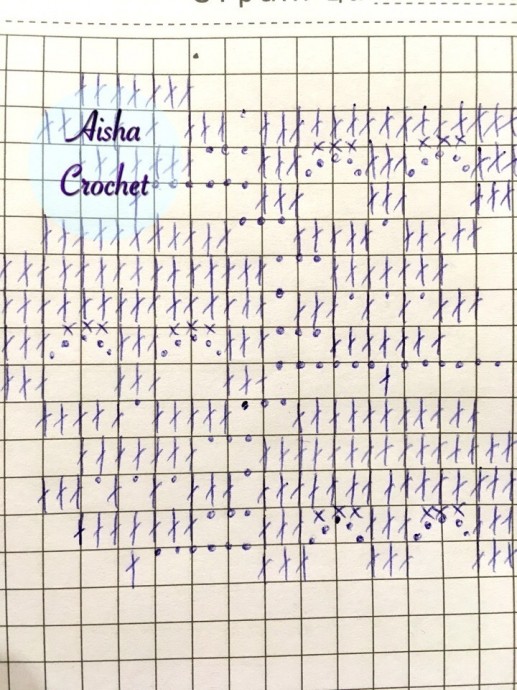 Aisha
Crochet